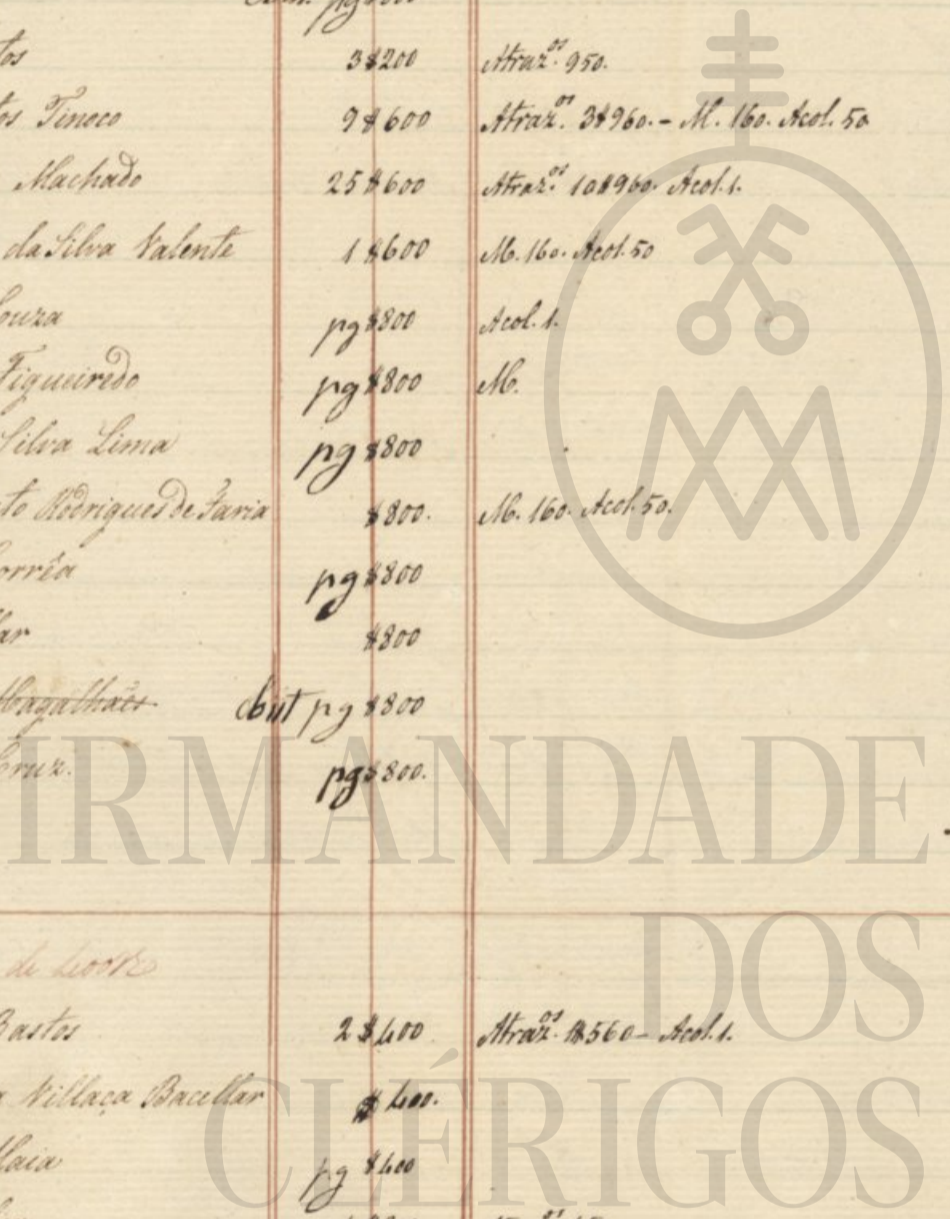 pg $800
tos 3$200 Atraz.os 950.
tos Tinoco 9$600 Atraz.os 3$960. - M. 160. Acol. 50
Machado 25$600 Atraz.os 10$960. Acol. 1.
da Silva Valente 1$600 M. 160. Acol. 50
Souza pg $800 Acol. 1.
Figueiredo pg $800 M.
Silva Lima pg $800
to Rodrigues de Faria $800. M. 160. Acol. 50.
Corrêa pg $800
lar $800
Magalhães pg $800
Cruz. pg $800.
IRMANDADE
de 400 Rs
DOS
Bastos 2$400 Atraz.os 1$560 - Acol. 1.
a Villaça Bacellar $400.
CLÉRIGOS
Maia pg $400